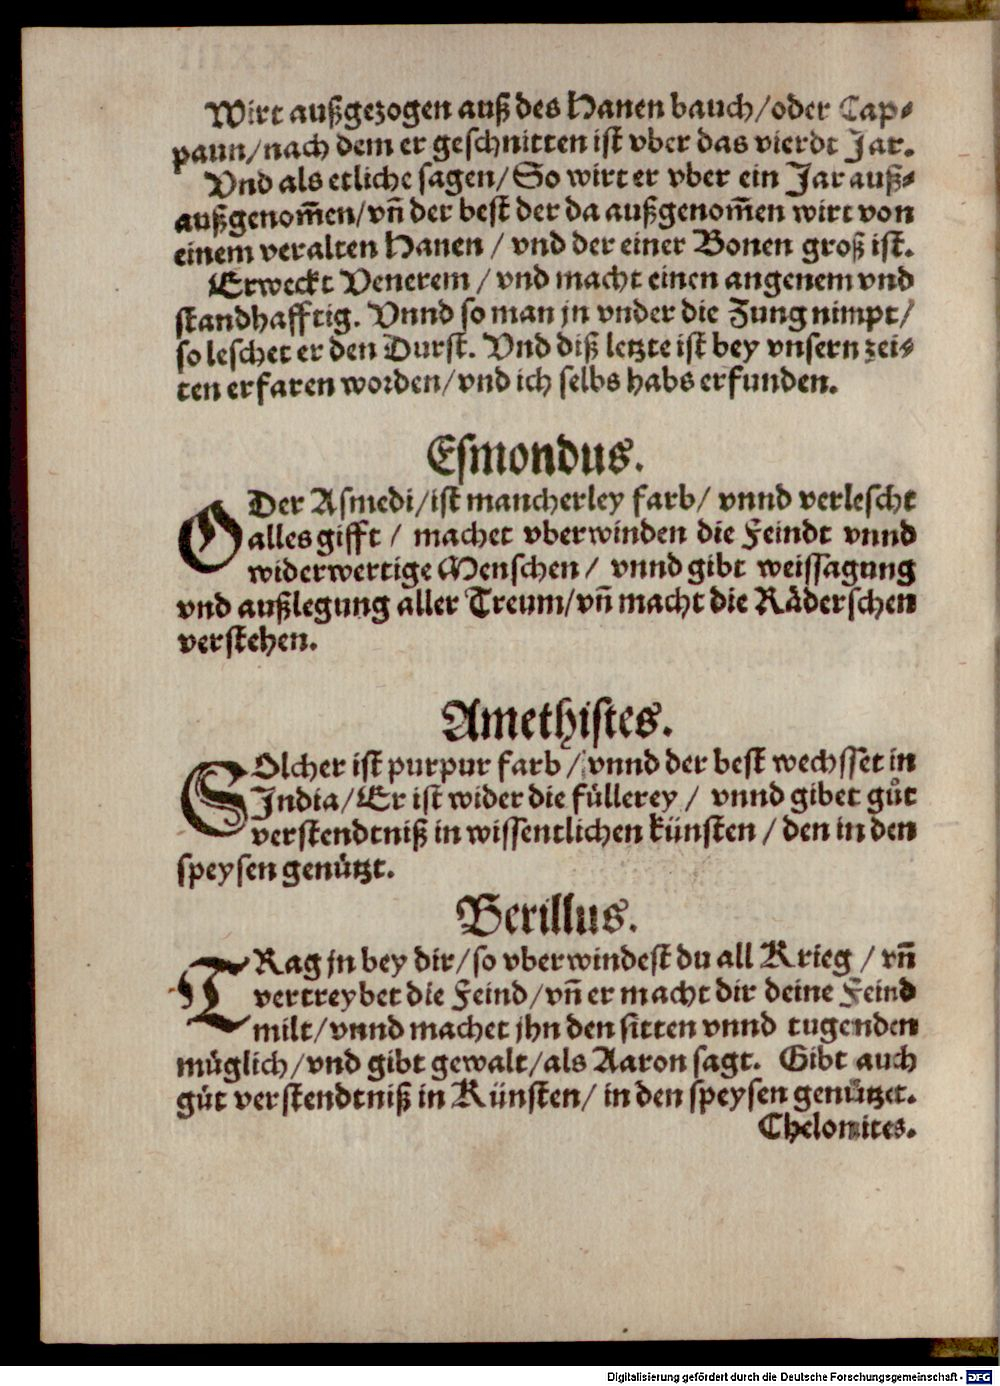 Wirt außgezogen auß des Hanen bauch/oder Cap⸗
paun/nach dem er geschnitten ist vber das vierdt Jar.
Vnd als etliche sagen/So wirt er vber ein Jar auß⸗
außgenom̃en/vñ der best der da außgenom̃en wirt von
einem veralten Hanen / vnd der einer Bonen groß ist.
Erweckt Venerem / vnd macht einen angenem vnd
standhafftig. Vnnd so man jn vnder die Zung nimpt/
so leschet er den Durst. Vnd diß letzte ist bey vnsern zei⸗
ten erfaren worden/vnd ich selbs habs erfunden.
Esmondus.
ODer Asmedi/ist mancherley farb/ vnnd verlescht
alles gifft / machet vberwinden die Feindt vnnd
widerwertige Menschen / vnnd gibt weissagung
vnd außlegung aller Treum/vñ macht die Räderschen
verstehen.
Amethistes.
SOlcher ist purpur farb / vnnd der best wechsset in
India/Er ist wider die füllerey / vnnd gibet gůt
verstendtniß in wissentlichen künsten / den in den
speysen genützt.
Berillus.
TRag jn bey dir/so vberwindest du all Krieg / vñ
vertreybet die Feind/vñ er macht dir deine Feind
milt/vnnd machet jhn den sitten vnnd tugenden
müglich/vnd gibt gewalt/als Aaron sagt. Gibt auch
gůt verstendtniß in Künsten/ in den speysen genützet.
Chelonites.
Digitalisierung gefördert durch die Deutsche Forschungsgemeinschaft - DFG